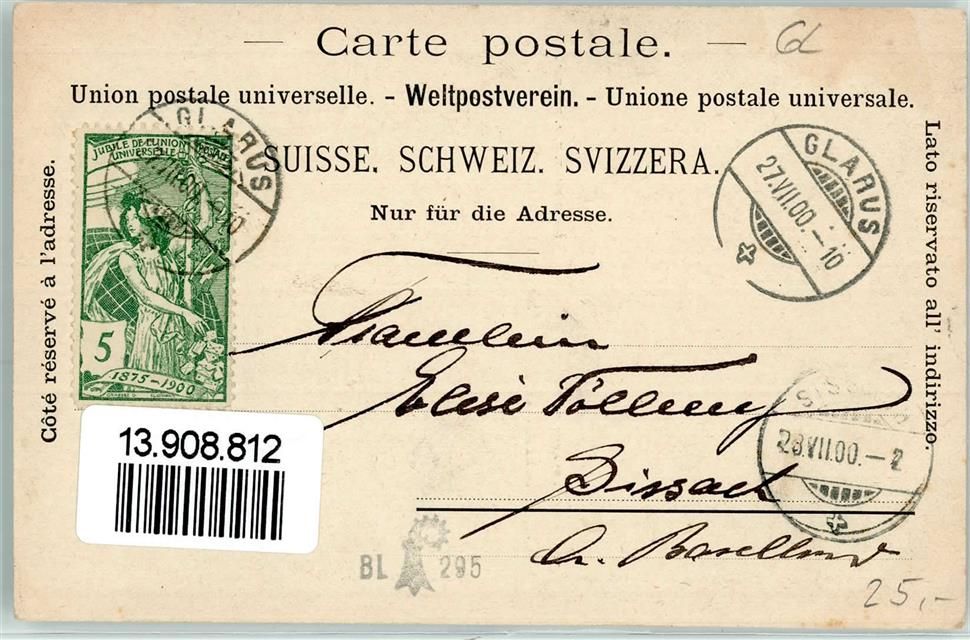 Carte postale.
Union postale universelle. - Weltpostverein. - Unione postale universale.
SUISSE. SCHWEIZ. SVIZZERA.
Nur für die Adresse.
Côté réservé à l'adresse.
Lato riservato all' indirizzo.
JUBILÉ DE L'UNION
UNIVERSELLE
5
1875-1900
GLARUS
GLARUS
27.VII.00.-10
Fraeulein
Elise
Sissach
Ct. Baselland
SISSACH
28.VII.00.-2
13.908.812
BL 295
25,-